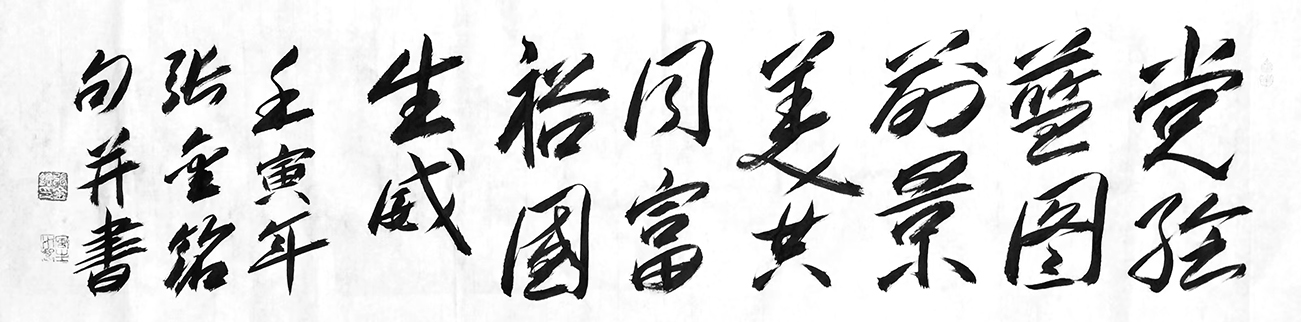 党绘
蓝图
前景
美共
同富
裕國
生威
壬寅年
张金铭
句并書